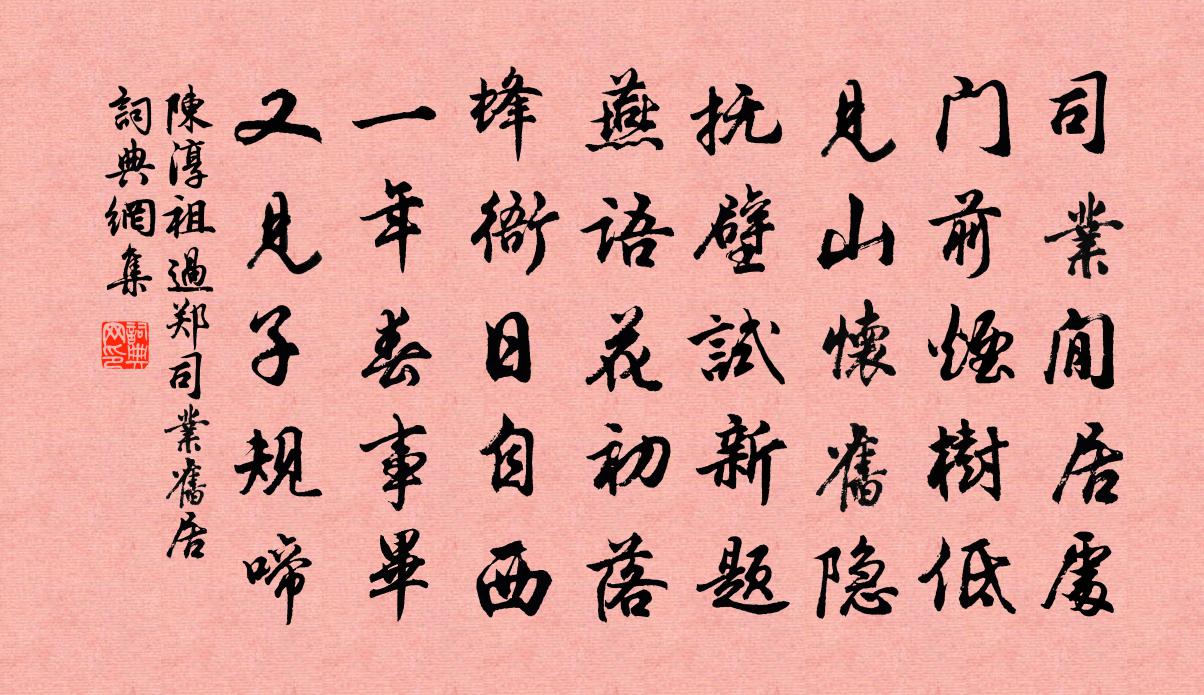 司業閒居處
门前煙樹低
見山懷舊隐
抚壁試新题
燕語花初落
蜂衙日自西
一年春事畢
又見子規啼
陳淳祖過郑司業舊居
詞典網集
詞典网印